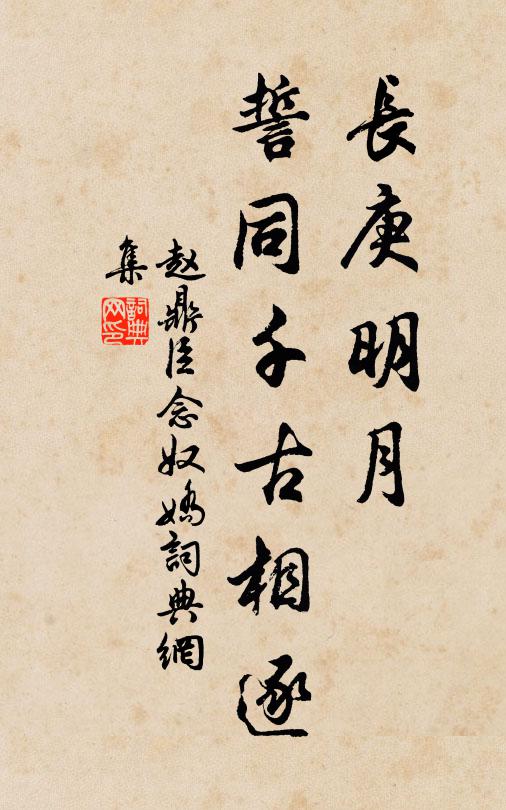 長庚明月
誓同千古相逐
赵鼎臣念奴嬌詞典網
集
詞典网印